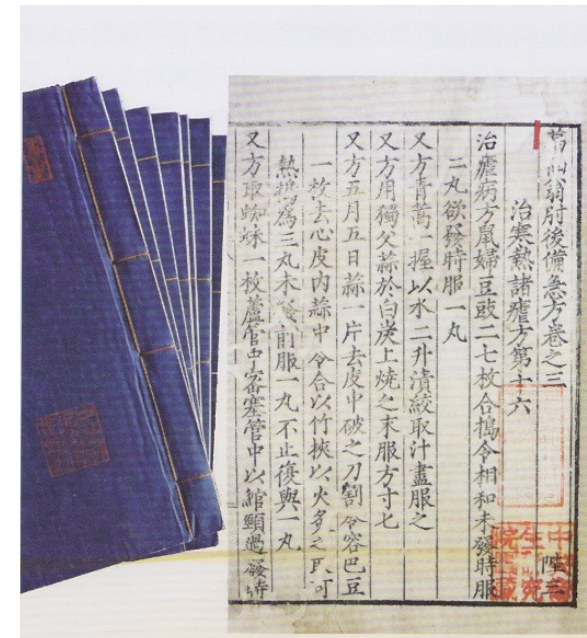 葛仙翁肘後備急方卷之三
治寒熱諸瘧方第十六
治瘧病方鼠婦豆豉二七枚合搗令相和未發時服
二丸欲發時服一丸
又方青蒿一握以水二升漬絞取汁盡服之
又方用獨父蒜於白炭上燒之末服方寸匕
又方五月五日蒜一片去皮中破之刀割令容巴豆
一枚去心皮內蒜中令合以竹挾以火炙之取可
熱搗為三丸未發前服一丸不止復與一丸
又方取蜘蛛一枚蘆管中密塞管中以綰頸過發時
陞三